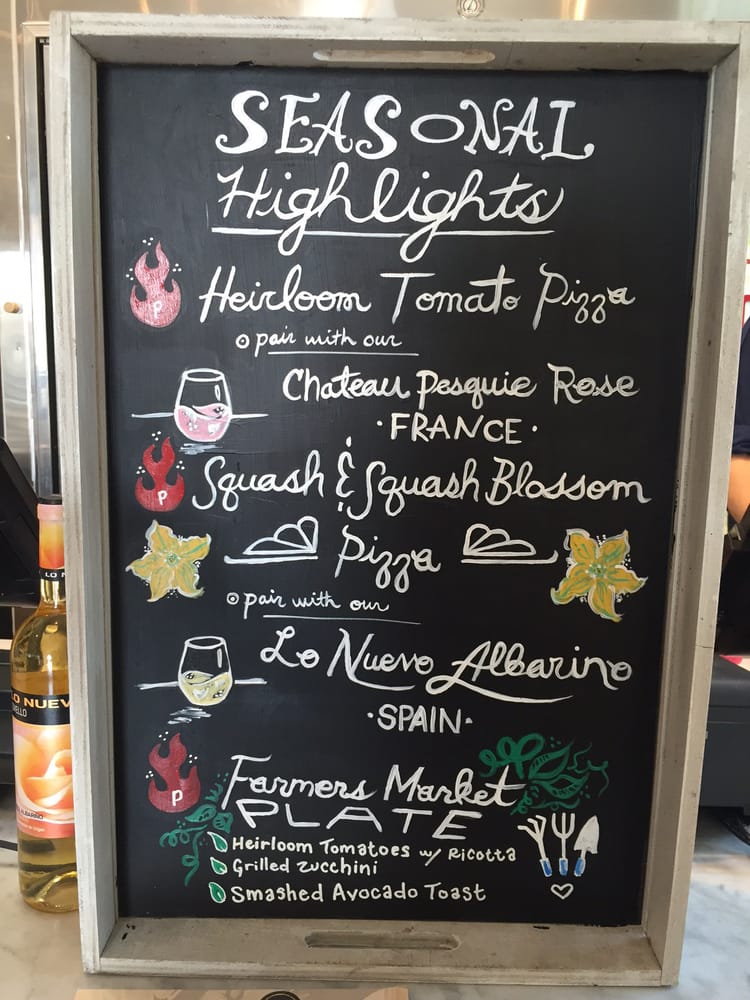 SEASONAL
Highlights
P
Heirloom Tomato Pizza
pair with our
Chateau Pesquie Rose
·FRANCE·
P
Squash & Squash Blossom
Pizza
pair with our
Lo Nuevo Albarino
·SPAIN·
P
Farmers Market
PLATE
Heirloom Tomatoes w/ Ricotta
Grilled Zucchini
Smashed Avocado Toast
LO N
LO NUEV
ALBARIÑO